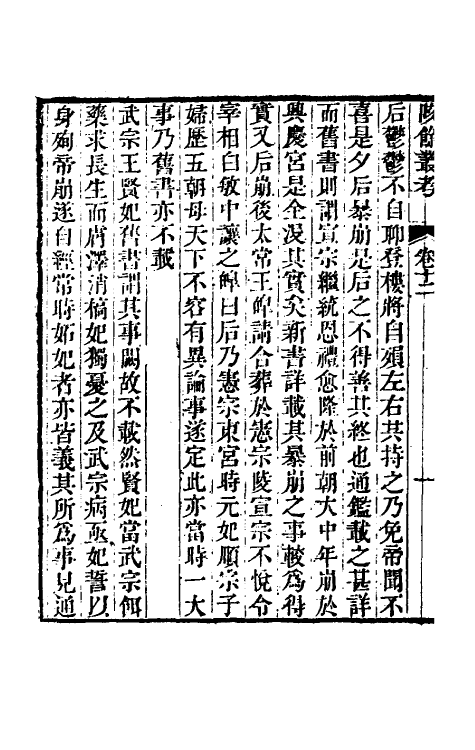 陔餘叢考 卷十二 一
后鬱鬱不自聊登樓將自頽左右共持之乃免帝聞不
喜是夕后暴崩是后之不得善其終也通鑑載之甚詳
而舊書則謂宣宗繼統恩禮愈隆於前朝大中年崩於
興慶宮是全没其實矣新書詳載其暴崩之事較爲得
實又后崩後太常王皥請合葬於憲宗陵宣宗不悅令
宰相白敏中讓之皥曰后乃憲宗東宮時元妃順宗子
婦歷五朝母天下不容有異論事遂定此亦當時一大
事乃舊書亦不載
武宗王賢妃舊書謂其事闕故不載然賢妃當武宗餌
藥求長生而膚澤消槁妃獨憂之及武宗病亟妃誓以
身殉帝崩遂自經當時妬妃者亦皆義其所爲事見通